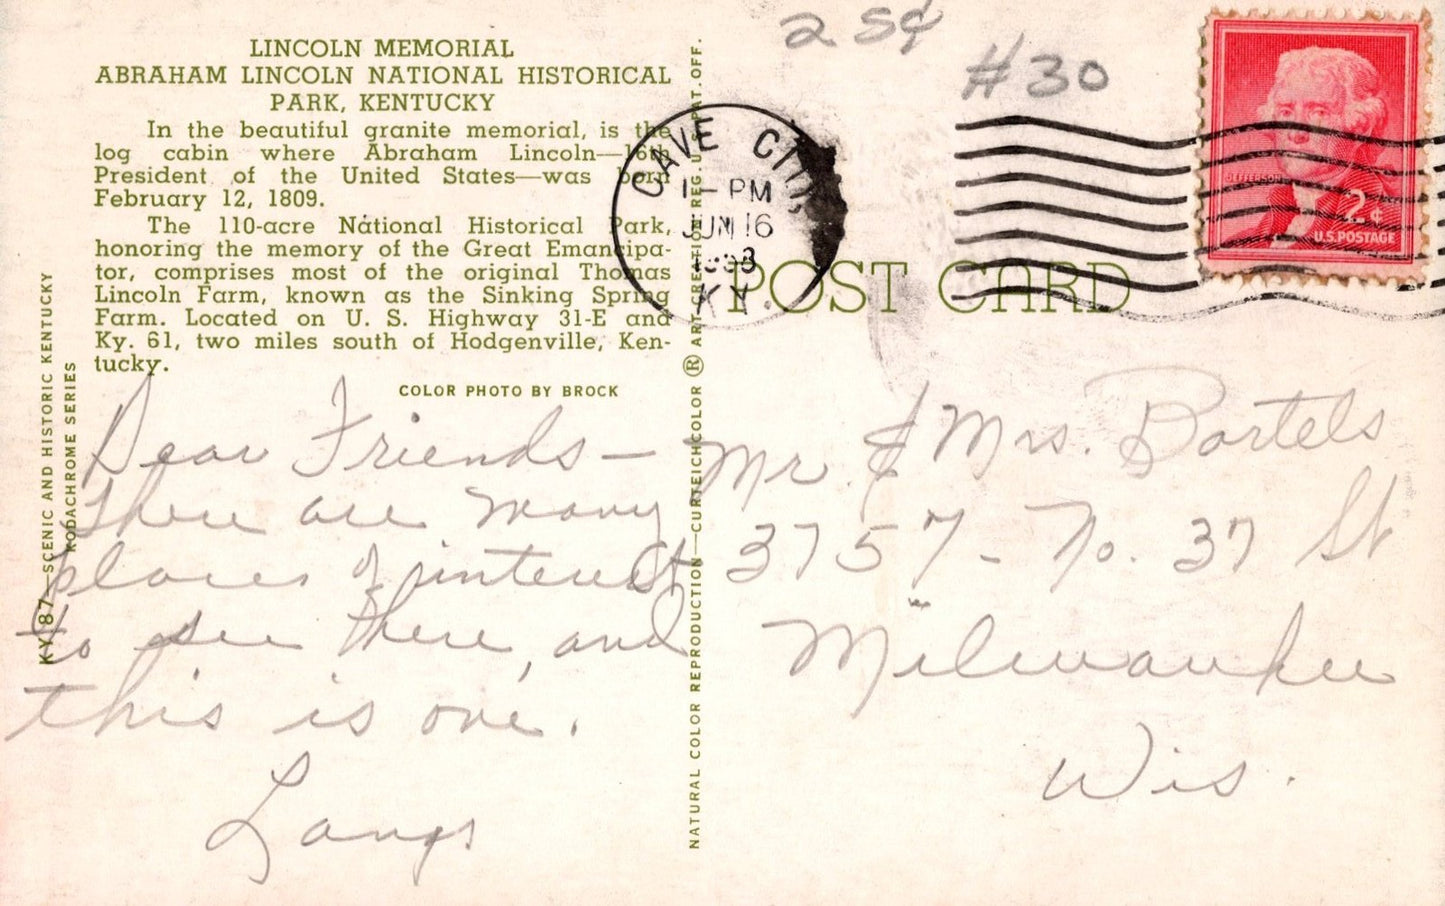 25¢
#30
LINCOLN MEMORIAL
ABRAHAM LINCOLN NATIONAL HISTORICAL
PARK, KENTUCKY
In the beautiful granite memorial, is the
log cabin where Abraham Lincoln—16th
President of the United States—was born
February 12, 1809.
The 110-acre National Historical Park,
honoring the memory of the Great Emancipa-
tor, comprises most of the original Thomas
Lincoln Farm, known as the Sinking Spring
Farm. Located on U. S. Highway 31-E and
Ky. 61, two miles south of Hodgenville, Ken-
tucky.
COLOR PHOTO BY BROCK
KY 87—SCENIC AND HISTORIC KENTUCKY
KODACHROME SERIES
Dear Friends—
There are many
places of interest
to see there, and
this is one.
Langs
NATURAL COLOR REPRODUCTION—CURTEICHCOLOR ® ART-CREATION REG. U.S. PAT. OFF.
CAVE CITY,
1 - PM
JUN 16
KY.
JEFFERSON
2¢
U.S. POSTAGE
POST CARD
Mr & Mrs. Bartels
3757 - No. 37 St
Milwaukee
Wis.